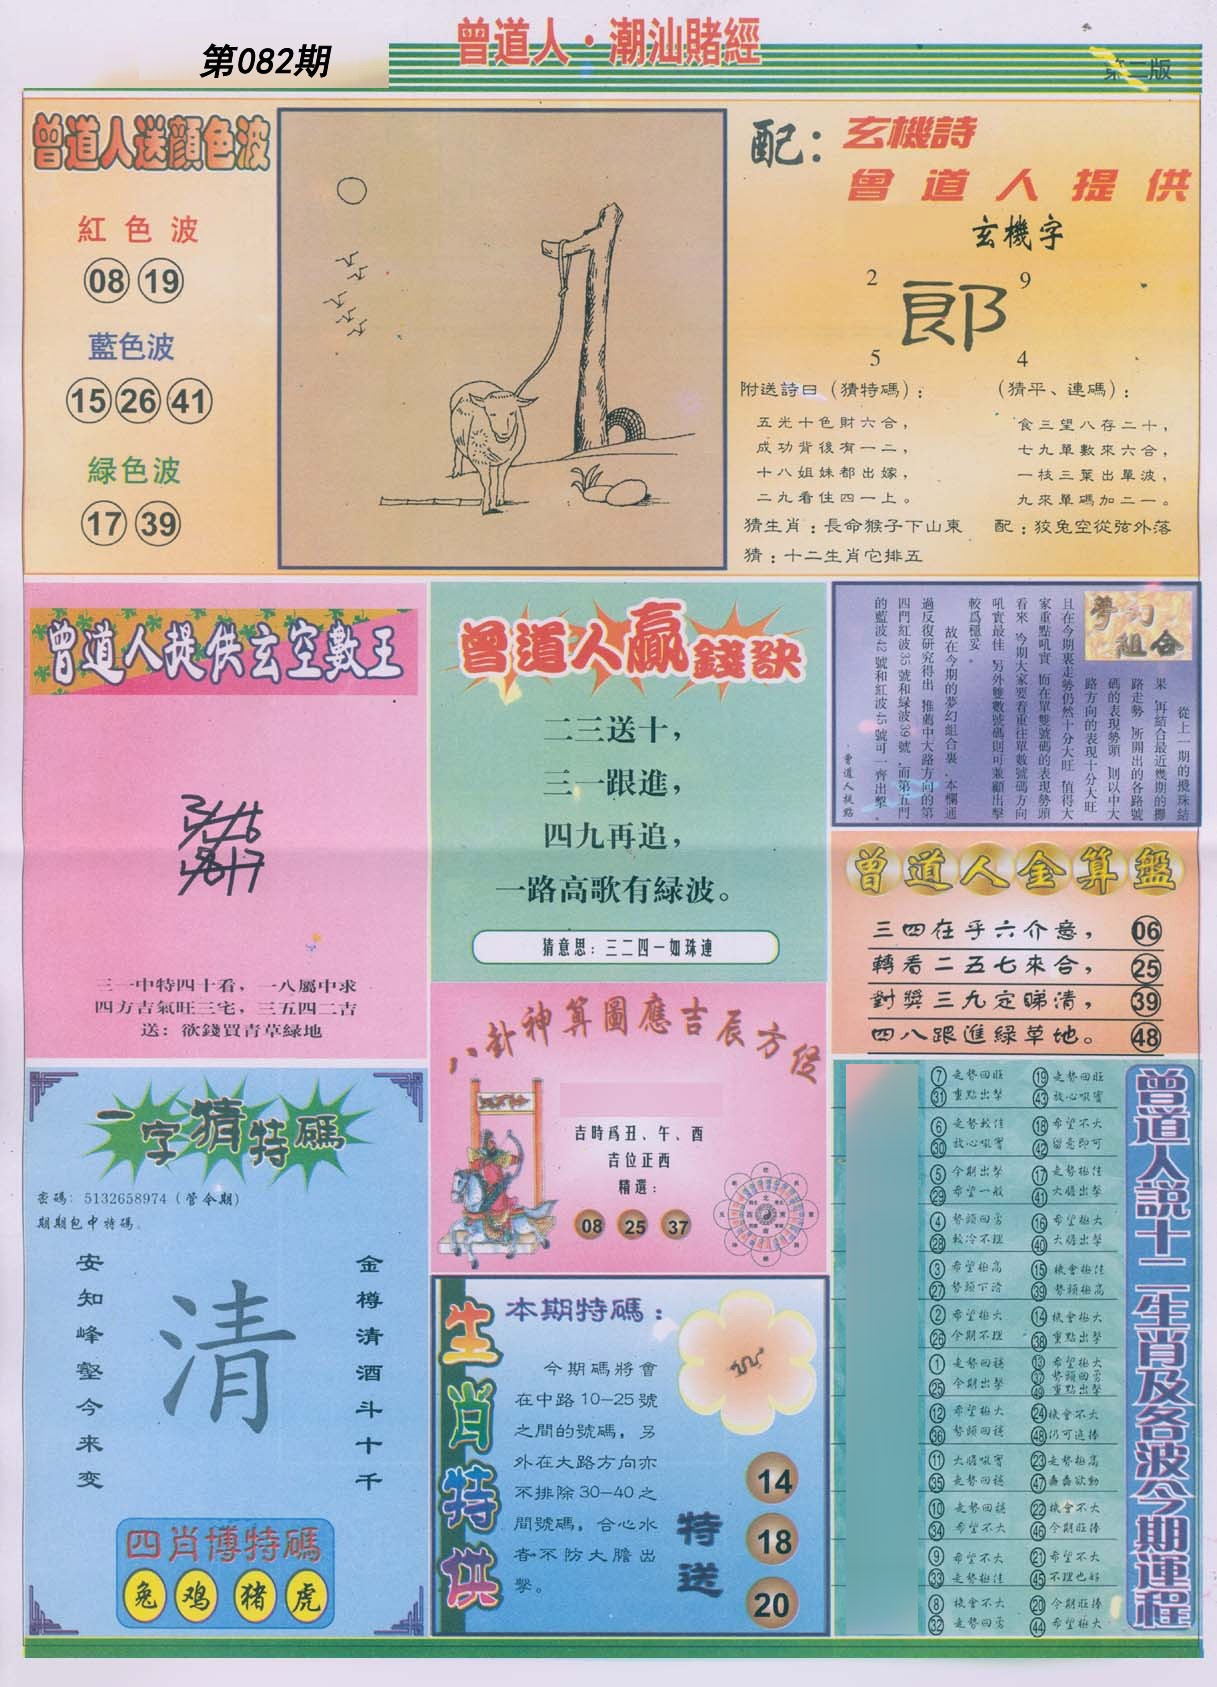 第082期
曾道人·潮汕賭經
第二版
曾道人送顏色波
紅色波
08 19
藍色波
15 26 41
緑色波
17 39
配：玄機詩
曾道人提供
玄機字
2 9
郎
5 4
附送詩曰（猜特碼）：
五光十色財六合，
成功背後有一二，
十八姐妹都出嫁，
二九看住四一上。
猜生肖：長命猴子下山東
猜：十二生肖它排五
（猜平、連碼）：
食三望八存二十，
七九單數來六合，
一枝三葉出單波，
九來單碼加二一。
配：狡兔空從弦外落
曾道人提供玄空數王
三一中特四十看，一八屬中求
四方吉氣旺三宅，三五四二吉
送：欲錢買青草緑地
曾道人贏錢訣
二三送十，
三一跟進，
四九再追，
一路高歌有緑波。
猜意思：三二四一如珠連
夢幻組合
從上一期的攪珠結
果，再結合最近幾期的攪
路走勢，所開出的各路號
碼的表現勢頭，則以中大
路方向的表現十分大旺，
且在今期裏走勢仍然十分大旺，值得大
家重點吼實，而在單雙號碼的表現勢頭
看來，今期大家要着重往單數號碼方向
吼實最佳，另外雙數號碼則可兼顧出擊
較爲穩妥。
故在今期的夢幻組合裏，本欄通
過反復研究得出，推薦中大路方向的第
四門紅波35號和緑波39號，而第五門
的藍波42號和紅波45號可一齊出擊。
·曾道人提點
曾道人金算盤
三四在乎六介意， 06
轉看二五七來合， 25
對獎三九定睇清， 39
四八跟進緑草地。 48
八卦神算圖應吉辰方位
吉時爲丑、午、酉
吉位正西
精選：
08 25 37
一字猜特碼
密碼：5132658974（管令期）
期期包中特碼。
安知峰壑今来变
清
金樽清酒斗十千
四肖博特碼
兔 鸡 猪 虎
生肖特供
本期特碼：
今期碼將會
在中路10—25號
之間的號碼，另
外在大路方向亦
不排除30—40之
間號碼，合心水
者不防大膽出
擊。
特送
14
18
20
曾道人説十二生肖及各波今期運程
7 走勢回旺 19 走勢回旺
31 重點出擊 43 放心吼實
6 走勢較佳 18 希望不大
30 放心吼實 42 留意即可
5 今期出擊 17 走勢極佳
29 希望一般 41 大膽出擊
4 勢頭回勇 16 希望極大
28 較冷不理 40 大膽出擊
3 希望極高 15 機會極佳
27 勢頭下滑 39 勢頭極高
2 希望極大 14 機會極大
26 今期不理 38 重點出擊
1 走勢回穩 13 希望極大
37 勢頭回勇
25 今期出擊 49 重點出擊
12 希望極大 24 機會不大
36 勢頭回穩 48 仍可追捧
11 大膽吼實 23 走勢極高
35 走勢回穩 47 轟轟欲動
10 走勢回穩 22 機會不大
34 希望不大 46 今期旺捧
9 希望不大 21 希望不大
33 走勢極佳 45 不理也好
8 機會不大 20 今期旺捧
32 走勢回勇 44 希望極大